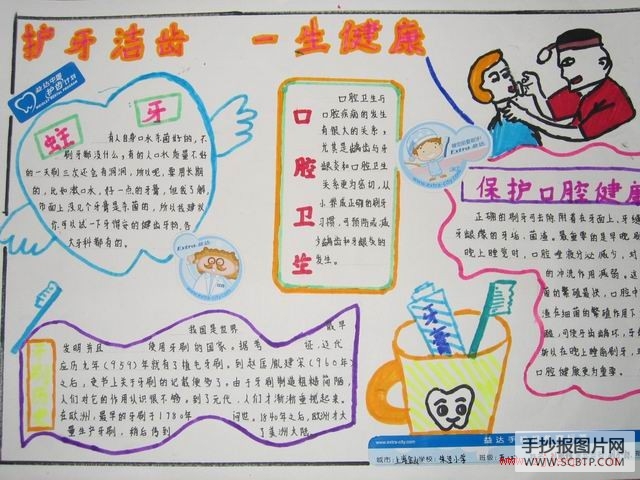 护牙洁齿 一生健康
益达中国
护齿计划
蛀 牙
有人自身口水杀菌好的,不
刷牙都没什么,有的人口水质量不好
的一天刷三次还会有洞洞,所以呢,要用长期
的,比如漱口水,好一点的牙膏,但我了解,
市面上没几个牙膏是杀菌的,所以我建议
你可以试一下
大牙科都有的。
口腔卫生
口腔卫生与
口腔疾病的发生
有很大的关系,
尤其是龋齿与牙
龈炎和口腔卫生
关系更为密切,从
小养成正确的刷牙
习惯,可预防或减
少龋齿和牙龈炎的
发生。
www.extra-city.com
Extra 益达
保护口腔健康
正确的刷牙可去除附着在牙面上、牙缝
牙龈缘的牙垢,菌渣。最重要的是早晚刷
晚上睡觉时,口腔唾液分泌减少,对
的冲洗作用减弱。这
菌的繁殖最快,口腔中
渣在细菌的繁殖作用下
酸,可使牙齿龋坏,牙
所以在晚上睡前刷牙,对
口腔健康更为重要。
牙膏
我国是世界 最早
发明并且 使用牙刷的国家。据考 证,辽代
应历九年(959)年就有了植毛牙刷。到赵匡胤建宋(960年)
之后,史书上关于牙刷的记载便多了。由于牙刷制造粗糙简陋,
人们对它的作用认识很不够。到了元代,人们才渐渐重视起来。
在欧洲,最早的牙刷于1780年 问世,1840年之后,欧洲才大
量生产牙刷,稍后传到 了美洲大陆。
www.extra-city.com 益达
城市: 上海金山 学校: 朱泾小学 班级:
手抄报图片网
WWW.SCBTP.COM